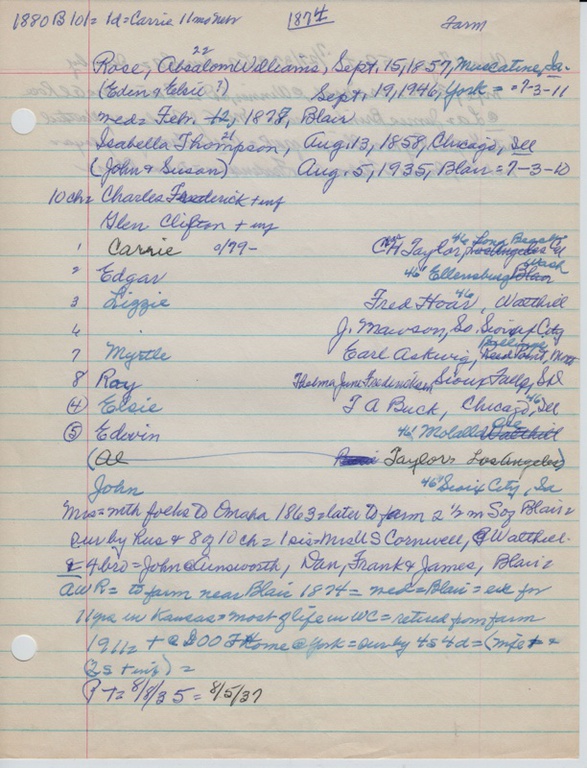 1880 B 101 = 1d = Carrie 11 mo Nebr 1874 Farm
22
Rose, Absalom Williams, Sept. 15, 1857, Muscatine, Ia.
(Edin & Elsie?) Sept. 19, 1946, York = = ?-3-11
med = Febr. 12, 1878, Blair
21
Isabella Thompson, Aug. 13, 1858, Chicago, Ill
(John & Susan) Aug. 5, 1935, Blair = ?-3-10
10 ch = Charles Frederick + inf
Glen Clifton + inf
1 Carrie 0/79- CH Taylor, 46 Long Beach Los Angeles Cal
2 Edgar 46 Ellensburg Wash Blair
3 Lizzie Fred Hoar 46, Walthill
4 J. Mawson, So. Sioux City
7 Myrtle Earl Askwig, Mont
8 Ray Thelma June Frederickson, Sioux Falls, Sd
(4) Elsie F A Buck, Chicago, 46 Ill
(5) Edwin 46 Molalla Ore Walthill
(Al Taylor Los Angeles)
John 46 Sioux City, Ia
Mrs = mth folks to Omaha 1863 = later to farm 2 1/2 m So of Blair =
sur by hus & 8 of 10 ch = 1 sis = Mrs W S Cornwell, Walthill
& 4 bro = John Dunsworth, Dan, Frank & James, Blair =
A W R = to farm near Blair 1874 = med = Blair = exc for
11 yrs in Kansas = most of life in WC = retired from farm
1911 = + @ IOOF Home @ York = sur by 4s 4d = (wife +
2s + inf) =
P T = 8/8/35 = 8/5/37